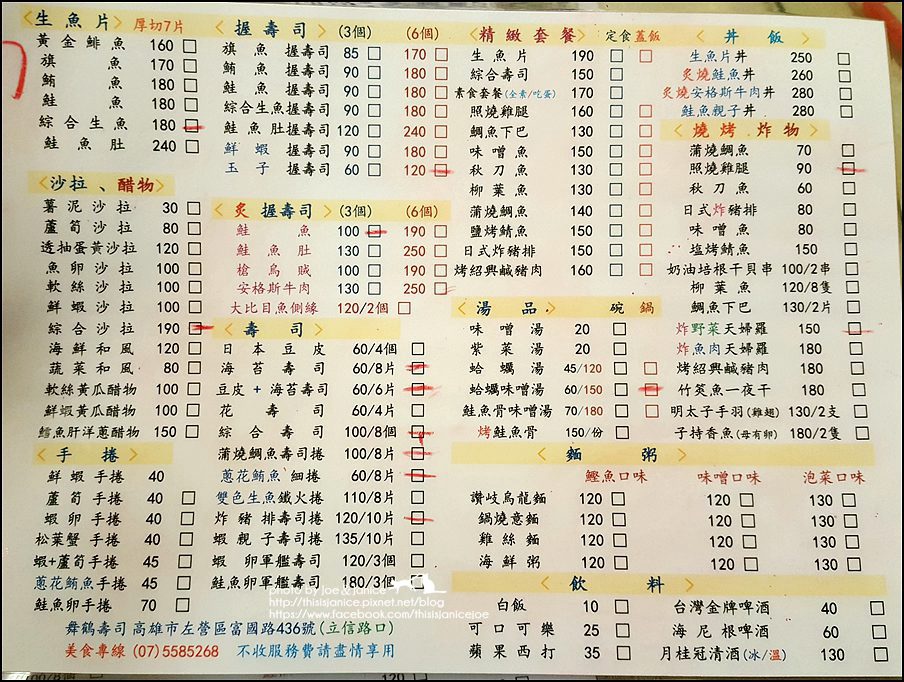 <生魚片> 厚切7片
黃金鯡魚 160 □
旗魚 170 □
鮪魚 180 □
鮭魚 180 □
綜合生魚 180 □
鮭魚肚 240 □
<沙拉、醋物>
薯泥沙拉 30 □
蘆筍沙拉 80 □
透抽蛋黃沙拉 120 □
魚卵沙拉 100 □
軟絲沙拉 100 □
鮮蝦沙拉 100 □
綜合沙拉 190 □
海鮮和風 120 □
蔬菜和風 80 □
軟絲黃瓜醋物 100 □
鮮蝦黃瓜醋物 100 □
鱈魚肝洋蔥醋物 150 □
<手捲>
鮮蝦手捲 40
蘆筍手捲 40 □
蝦卵手捲 40 □
松葉蟹手捲 40 □
蝦+蘆筍手捲 45 □
蔥花鮪魚手捲 45 □
鮭魚卵手捲 70 □
<握壽司> (3個) (6個)
旗魚握壽司 85 □ 170 □
鮪魚握壽司 90 □ 180 □
鮭魚握壽司 90 □ 180 □
綜合生魚握壽司 90 □ 180 □
鮭魚肚握壽司 120 □ 240 □
鮮蝦握壽司 90 □ 180 □
玉子握壽司 60 □ 120 □
<炙握壽司> (3個) (6個)
鮭魚 100 □ 190 □
鮭魚肚 130 □ 250 □
槍烏賊 100 □ 190 □
安格斯牛肉 130 □ 250 □
大比目魚側緣 120/2個 □
<壽司>
日本豆皮 60/4個 □
海苔壽司 60/8片 □
豆皮+海苔壽司 60/6片 □
花壽司 60/4片 □
綜合壽司 100/8個 □
蒲燒鯛魚壽司捲 100/8片 □
蔥花鮪魚細捲 60/8片 □
雙色生魚鐵火捲 110/8片 □
炸豬排壽司捲 120/10片 □
蝦親子壽司捲 135/10片 □
蝦卵軍艦壽司 120/3個 □
鮭魚卵軍艦壽司 180/3個 □
<精緻套餐> 定食 蓋飯
生魚片 190 □ □
綜合壽司 150 □
素食套餐(全素/吃蛋) 170 □
照燒雞腿 160 □ □
鯛魚下巴 130 □ □
味噌魚 150 □ □
秋刀魚 130 □ □
柳葉魚 130 □ □
蒲燒鯛魚 140 □ □
鹽烤鯖魚 150 □ □
日式炸豬排 150 □ □
烤紹興鹹豬肉 160 □ □
<湯品> 碗 鍋
味噌湯 20 □
紫菜湯 20 □
蛤蠣湯 45/120 □ □
蛤蠣味噌湯 60/150 □ □
鮭魚骨味噌湯 70/180 □ □
烤鮭魚骨 150/份 □
<丼飯>
生魚片丼 250 □
炙燒鮭魚丼 260 □
炙燒安格斯牛肉丼 280 □
鮭魚親子丼 280 □
<燒烤.炸物>
蒲燒鯛魚 70 □
照燒雞腿 90 □
秋刀魚 60 □
日式炸豬排 80 □
味噌魚 80 □
塩烤鯖魚 150 □
奶油培根干貝串 100/2串 □
柳葉魚 120/8隻 □
鯛魚下巴 130/2片 □
炸野菜天婦羅 150 □
炸魚肉天婦羅 180 □
烤紹興鹹豬肉 180 □
竹筴魚一夜干 180 □
明太子手羽(雞翅) 130/2支 □
子持香魚(母有卵) 180/2隻 □
<麵粥>
鰹魚口味 味噌口味 泡菜口味
讚岐烏龍麵 120 □ 120 □ 130 □
鍋燒意麵 120 □ 120 □ 130 □
雞絲麵 120 □ 120 □ 130 □
海鮮粥 120 □ 120 □ 130 □
<飲料>
白飯 10 □ 台灣金牌啤酒 40 □
可口可樂 25 □ 海尼根啤酒 60 □
蘋果西打 35 □ 月桂冠清酒(冰/溫) 130 □
舞鶴壽司 高雄市左營區富國路436號(立信路口)
美食專線 (07)5585268 不收服務費請盡情享用
photo by Joe & Janice
http://thisisjanice.pixnet.net/blog
https://www.facebook.com/thisisjanicejoe